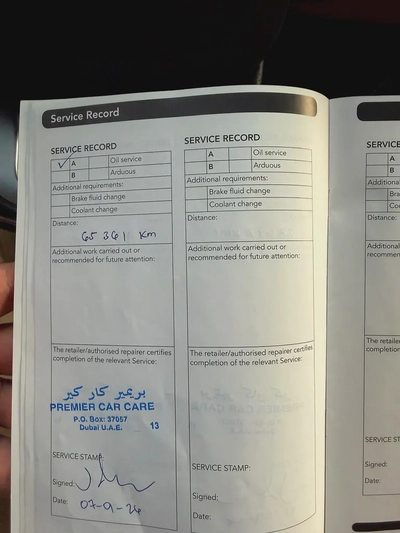 Service Record
SERVICE RECORD
A Oil service
B Arduous
Additional requirements:
Brake fluid change
Coolant change
Distance:
65 361 Km
Additional work carried out or
recommended for future attention:
The retailer/authorised repairer certifies
completion of the relevant Service:
بريمير كار كير
PREMIER CAR CARE
P.O. Box: 37057
Dubai U.A.E. 13
SERVICE STAMP:
Signed:
Date: 07-9-24
SERVICE RECORD
A Oil service
B Arduous
Additional requirements:
Brake fluid change
Coolant change
Distance:
Additional work carried out or
recommended for future attention:
The retailer/authorised repairer certifies
completion of the relevant Service:
SERVICE STAMP:
Signed:
Date:
SERVICE
A
B
Additional
Distance:
Additional
The retailer
completion
Signed:
Date: